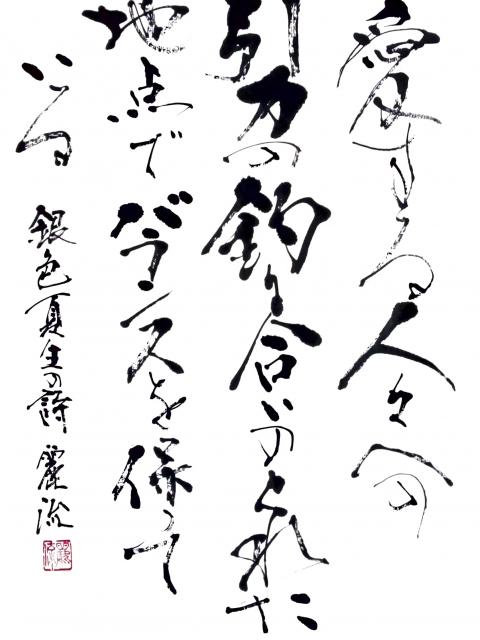 愛する人々への
引力の釣り合いのとれた
地点でバランスを保って
いる
銀色夏生の詩 麗流